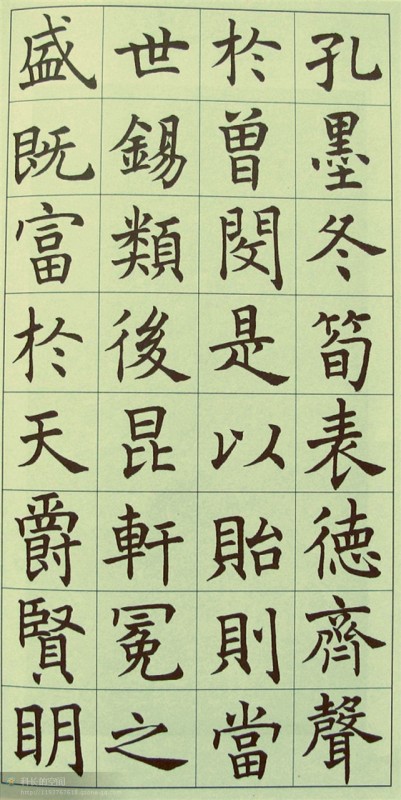 孔墨冬筍表德齊聲
於曾閔是以貽則當
世錫類後昆軒冕之
盛既富於天爵賢明
科长的空间